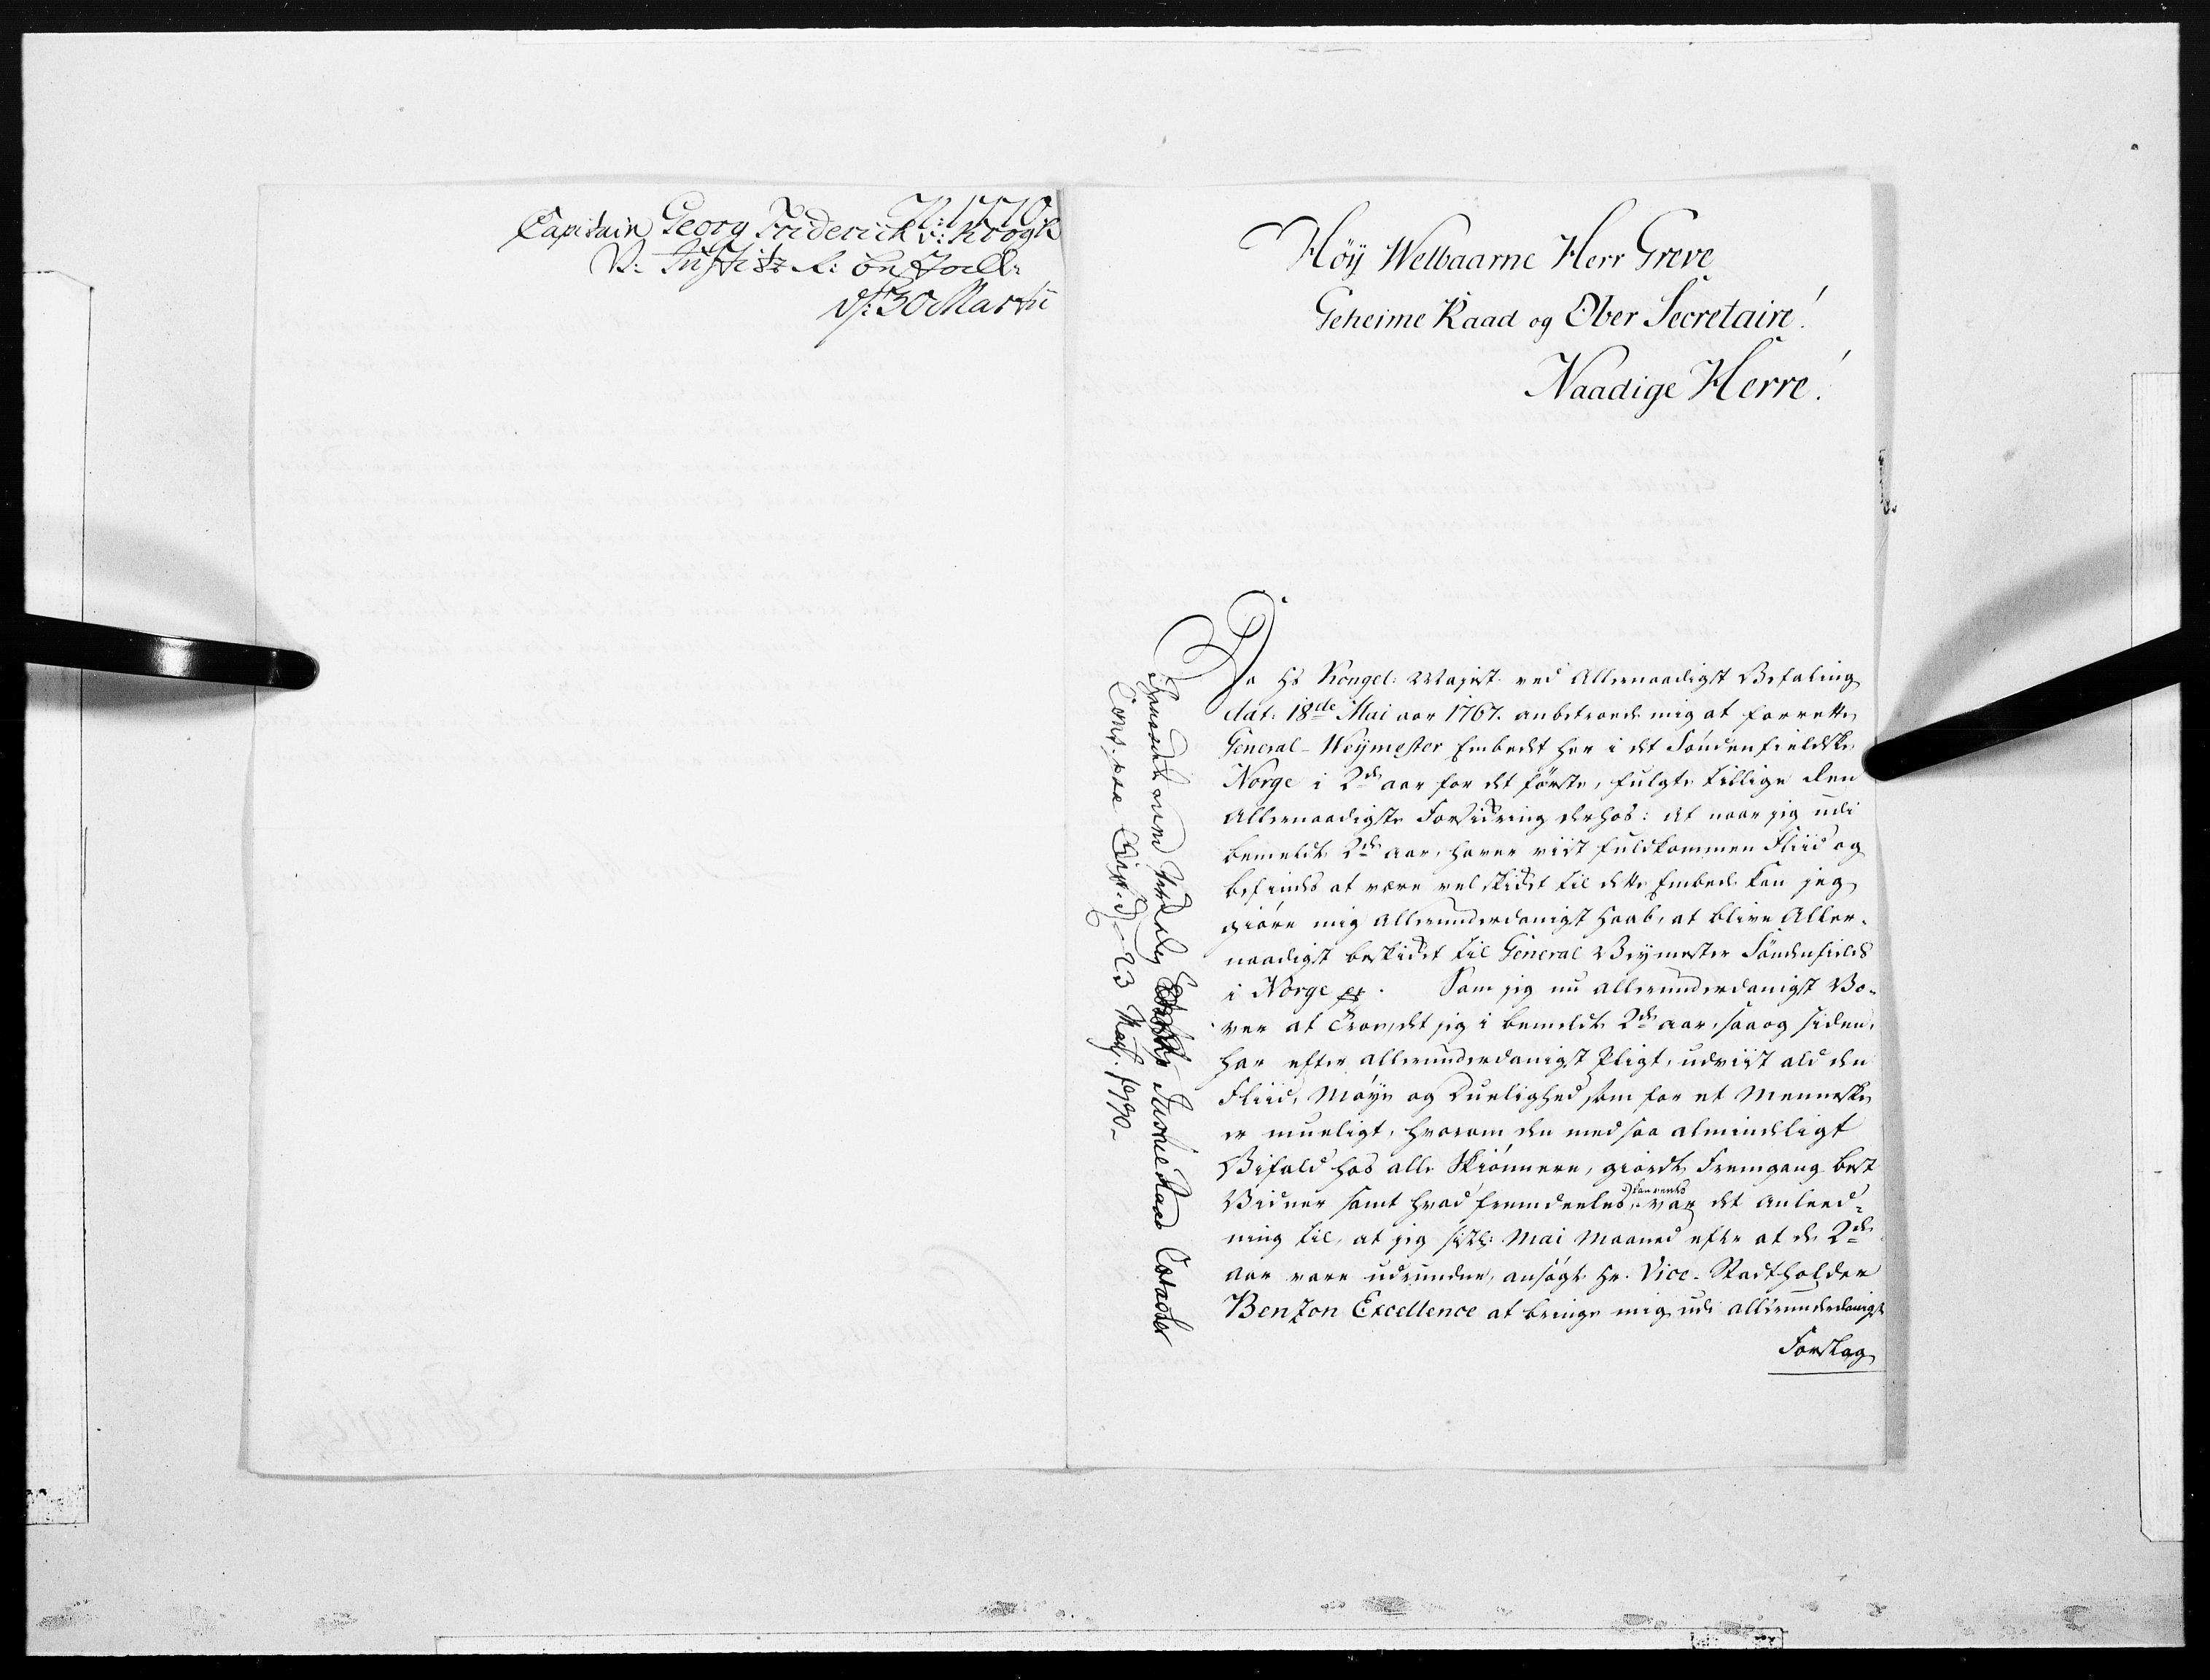 A: 1770
Capitain Georg Friderich v: Krogh
V: Justitz R: bestall:
d: 30 Martii
Høÿ Welbaarne Herr Greve
Geheime Raad og Ober Secretaire!
Naadige Herre!
Da Hs Kongel: Majest. ved Allernaadigst Befaling
dat. 18de Mai aar 1767. anbetroede mig at forrette
General-Weÿmester Embedet her i det Søndenfieldske
Norge i 2de aar for det første, fulgte tillige den
Allernaadigste Forsickring derhos: At naar jeg udi
bemeldte 2de aar, haver viist fuldkommen Fliid og
befindes at være vel skicket til dette Embede kan jeg
giøre mig allerunderdanigst Haab, at blive Aller-
naadigst beskicket til General Veymester Søndenfields
i Norge p. Som jeg nu allerunderdanigst Vo-
ver at troe, det jeg i bemeldte 2de aar, saa og siden,
har efter allerunderdanigst Pligt, udviist ald den
Fliid, Møye og Duelighed som for et Menneske
er mueligt, hvorom den med saa almindeligt
Bifald hos alle Skiønnere, giorde Fremgang best
Vidner samt hvad fremdeeles kan ventes, var det Anleed-
ning til, at jeg sidstl: Mai Maaned efter at de 2de
aar vare udrundne, ansøgte Hr. Vice-Stadtholder
Benzon Excellence at bringe mig udi allerunderdanigst
Forslag
Justice Raad
23 Mart. 1770